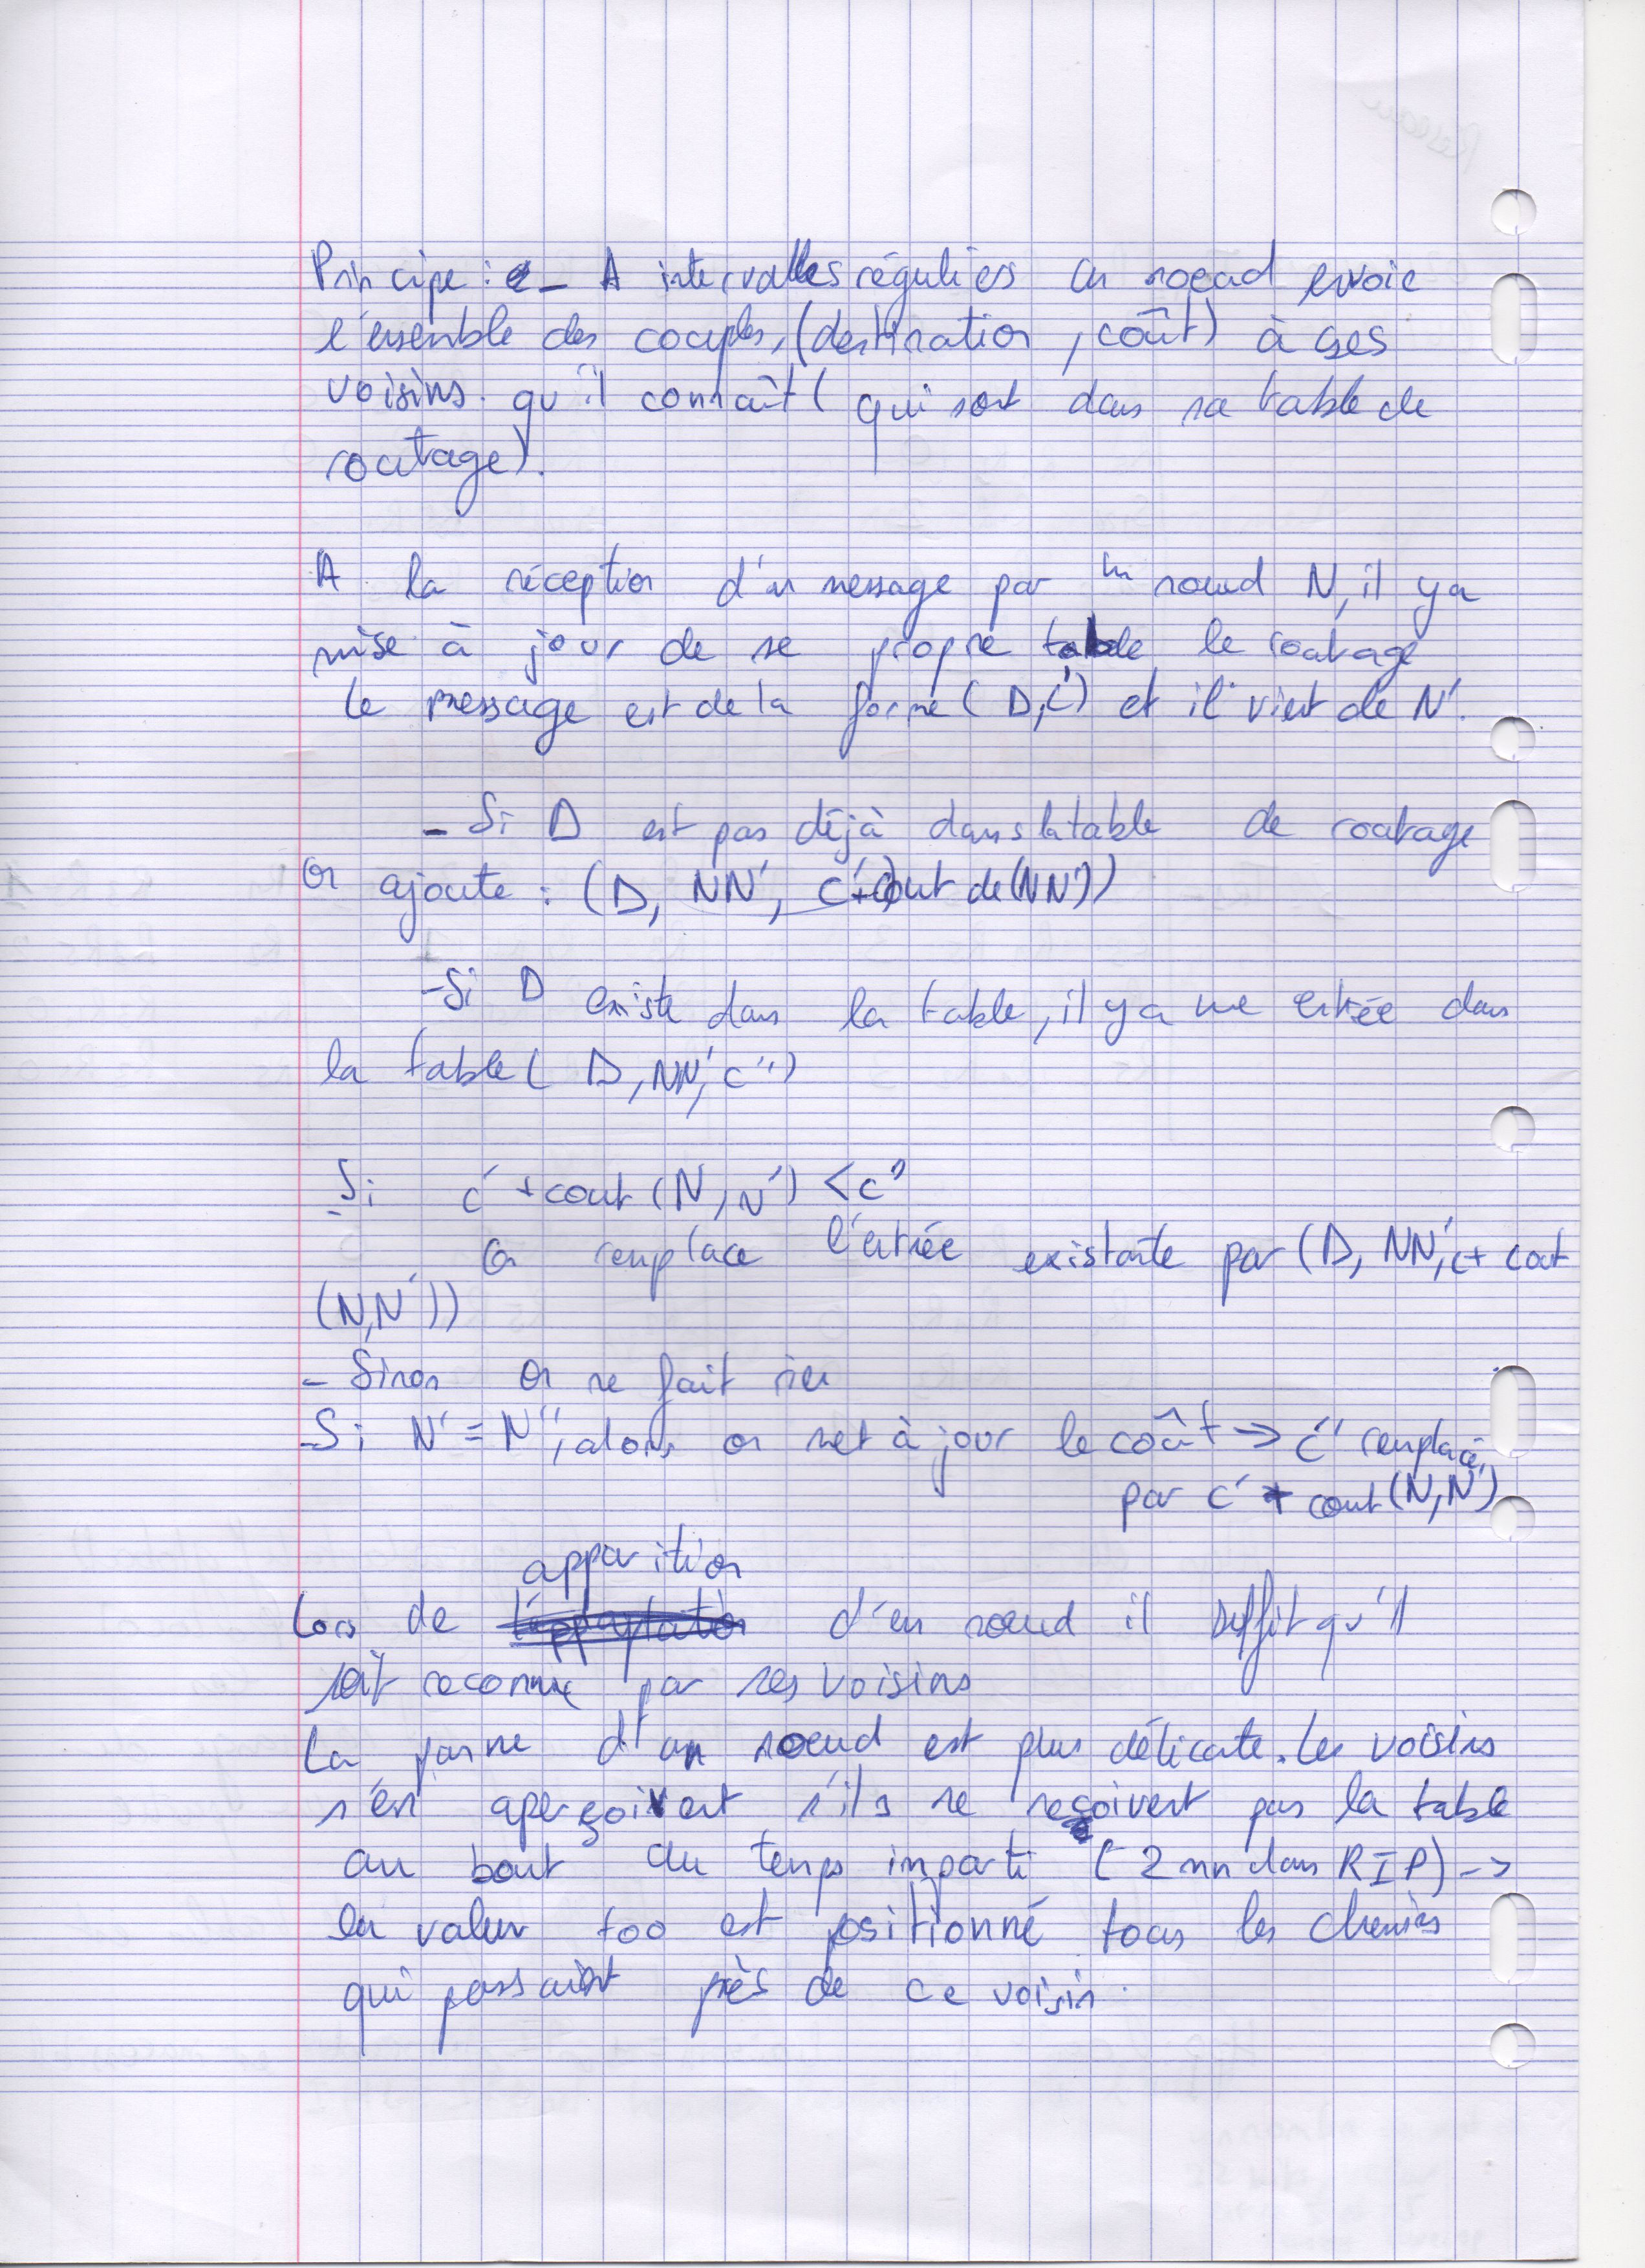 Principe : - A intervalles réguliers un noeud envoie
l'ensemble des couples, (destination, coût) à ses
voisins. qu'il connaît ( qui sont dans sa table de
routage).
A la réception d'un message par un noeud N, il y a
mise à jour de se propre table le routage
Le message est de la forme ( D, C') et il vient de N'.
- Si D est pas déjà dans la table de routage
on ajoute : (D, NN', C'+cout de(NN'))
- Si D existe dans la table, il y a une entrée dans
la table ( D, NN', c'')
- Si c' + cout (N, N') < c''
on remplace l'entrée existante par (D, NN', c+ cout
(N,N'))
- Sinon on ne fait rien
- Si N' = N'', alors on met à jour le coût → c'' remplacé
par c' + cout (N,N')
apparition
Lors de d'un noeud il suffit qu'il
soit reconnue par ses voisins
La panne d'un noeud est plus délicate. Les voisins
s'en aperçoivent s'ils ne reçoivent pas la table
au bout du temps imparti ( 2 mn dans RIP) ->
la valeur +oo est positionné tous les chemins
qui passaient près de ce voisin.